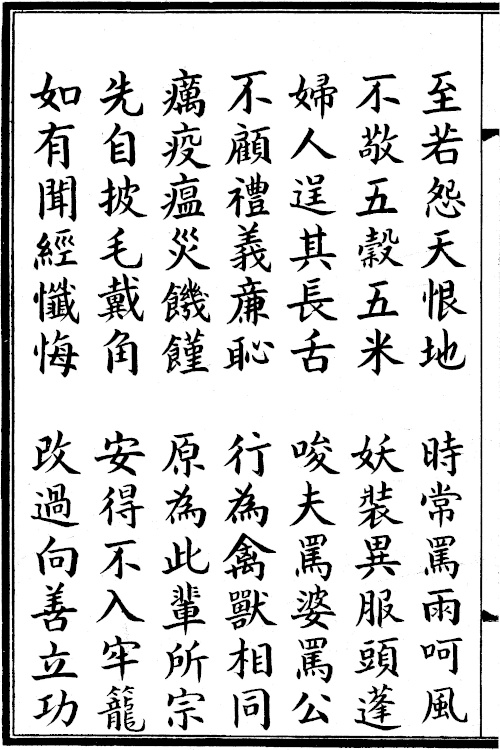 至若怨天恨地　時常罵雨呵風
不敬五穀五米　妖裝異服頭蓬
婦人逞其長舌　唆夫罵婆罵公
不顧禮義廉恥　行為禽獸相同
癘疫瘟災饑饉　原為此輩所宗
先自披毛戴角　安得不入牢籠
如有聞經懺悔　改過向善立功